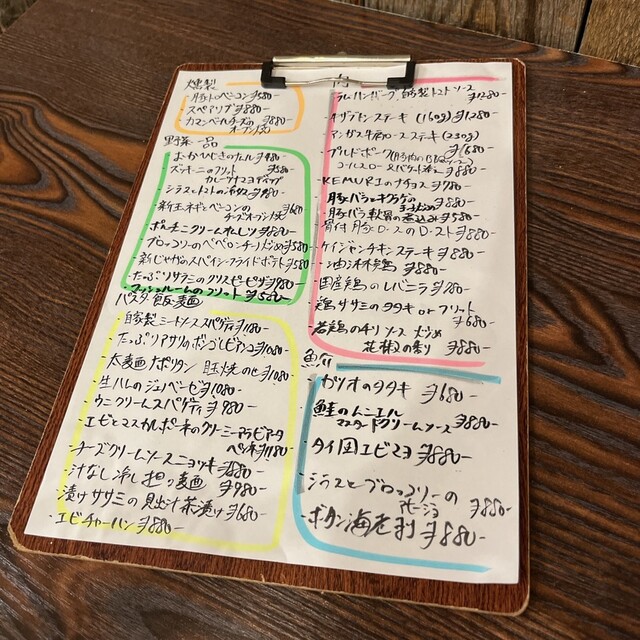 燻製
豚トロベーコン ¥580-
・スペアリブ ¥880-
・カマンベールチーズの ¥880-
オーブン焼
野菜一品
・おかひじきのナムル ¥480-
・ズッキーニのフリット ¥580-
カレーマヨディップ
・シラスとトマトの冷奴 ¥480-
・新玉ネギとベーコンの ¥680-
チーズオーブン焼
・ポルチーニクリームオムレツ ¥880-
・ブロッコリーのペペロンチーノ炒め ¥580-
・新じゃがのスペイン風フライドポテト ¥580-
・たっぷりサラミのクリスピーピザ ¥980-
・マッシュルームのフリット ¥580-
パスタ・飯・麺
・自家製ミートソーススパゲティ ¥1180-
・たっぷりアサリのボンゴレビアンコ ¥1080-
・太麺ナポリタン 目玉焼のせ ¥1080-
・生ハムのジェノベーゼ ¥1080-
・ウニクリームスパゲティ ¥980-
・エビとマスカルポーネのクリーミーアラビアータ
ペンネ ¥1180-
・チーズクリームソースニョッキ ¥880-
・汁なし冷し担々麺 ¥980-
・漬けササミの見出汁茶漬け ¥680-
・エビチャーハン ¥880-
肉
・ラムハンバーグ 自家製トマトソース ¥1280-
・サガリステーキ (160g) ¥1280-
・アンガス牛肩ロースステーキ (230g)
¥1680-
・プルドポーク
コールスロー&バゲット添え ¥880-
・KEMURIのナチョス ¥780-
・豚バラとキクラゲの
玉子炒め ¥880-
・豚バラ軟骨の煮込み ¥580-
・骨付豚ロースのロースト ¥880-
・ケイジャンチキンステーキ ¥880-
・油淋鶏 ¥880-
・国産鶏のレバニラ ¥780-
・鶏ササミのタタキ or フリット
¥680-
・若鶏のチリソース炒め
花椒の香り ¥880-
魚介
・カツオのタタキ ¥680-
・鮭のムニエル
マスタードクリームソース ¥880-
・タイ国エビマヨ ¥880-
・シラスとブロッコリーの
アヒージョ ¥880-
・ボタン海老刺 ¥880-